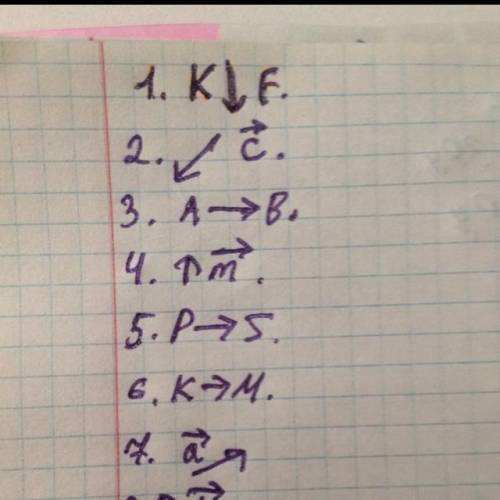 1. K ↓ F.
2. ↙ c⃗.
3. A → B.
4. ↑ m⃗.
5. P → S.
6. K → M.
7. a⃗ ↗